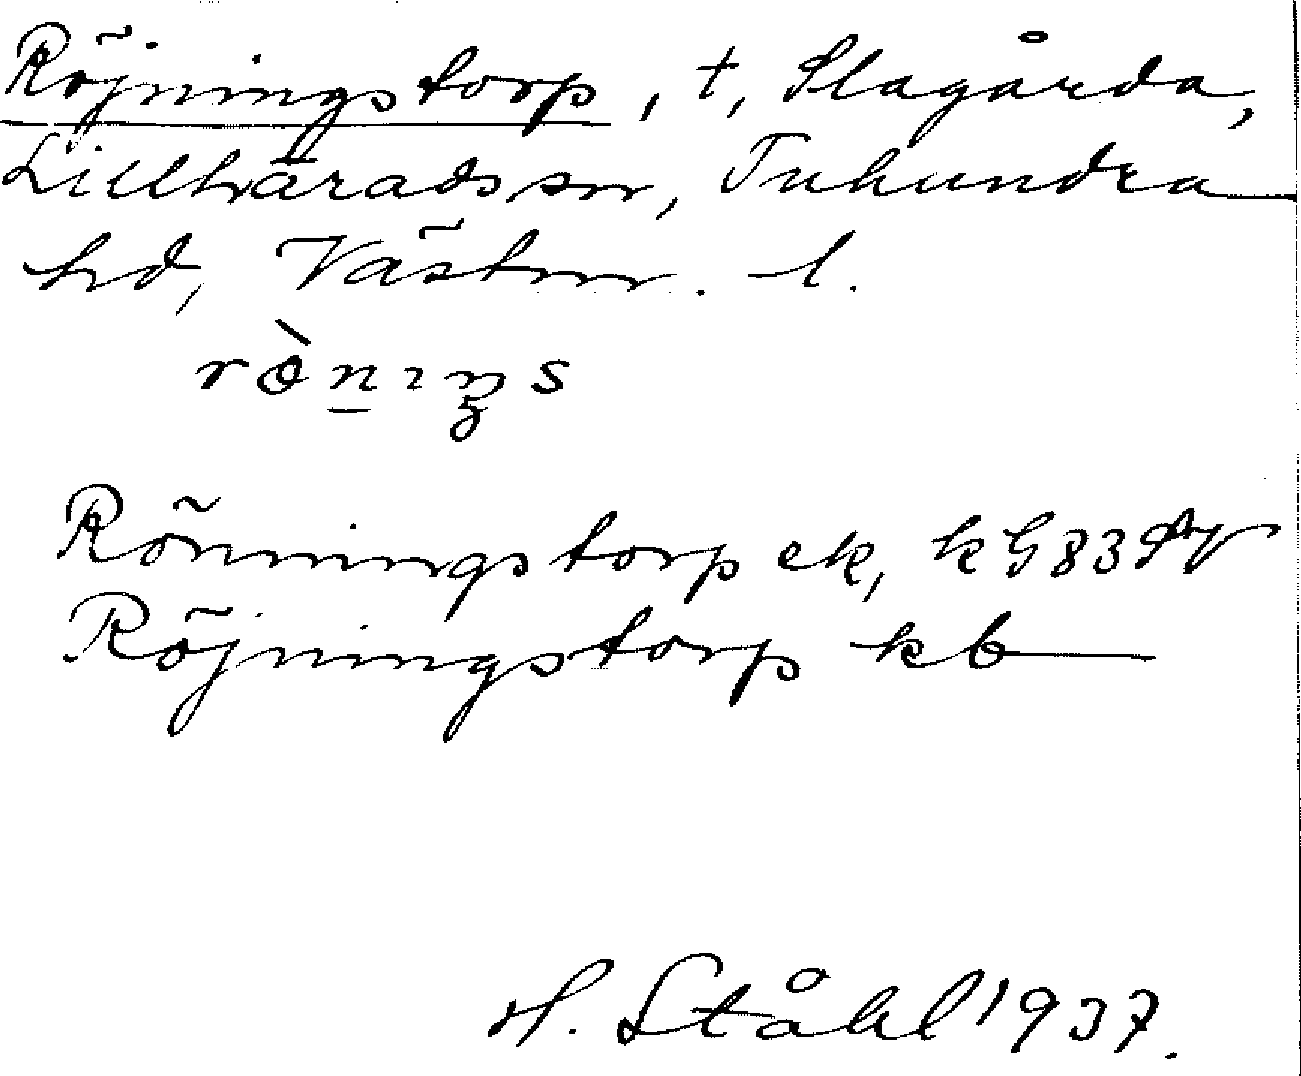 Röjningstorp, t, Slagårda,
Lillhärads sn, Tuhundra
hd, Västm. l.
Rönningstorp ek, k G83
Röjningstorp kb
H. Ståhl 1937.